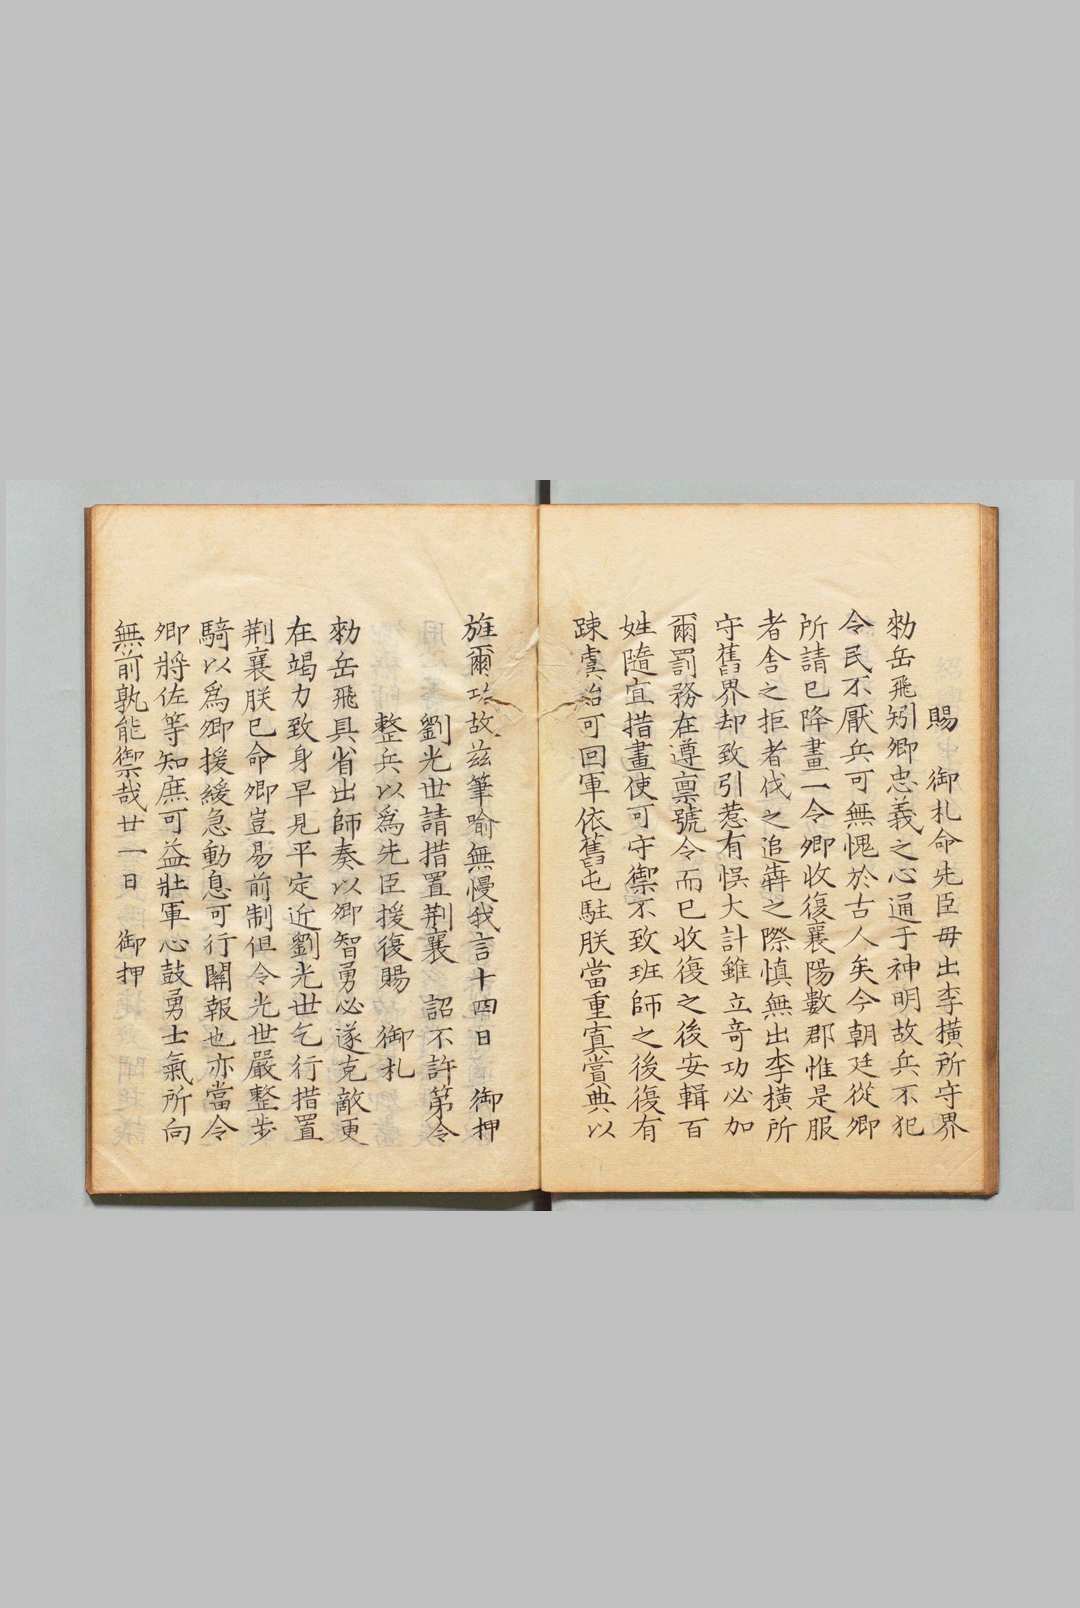 賜　御札命先臣毋出李橫所守界
勑岳飛矧卿忠義之心通于神明故兵不犯
令民不厭兵可無愧於古人矣今朝廷從卿
所請已降畫一令卿收復襄陽數郡惟是服
者舍之拒者伐之追犇之際慎無出李橫所
守舊界却致引惹有悞大計雖立竒功必加
爾罰務在遵禀號令而已收復之後安輯百
姓隨宜措畫使可守禦不致班師之後復有
踈虞始可回軍依舊屯駐朕當重寘賞典以
旌爾功故茲筆喻無慢我言十四日　御押
劉光世請措置荆襄　詔不許第令
整兵以爲先臣援復賜　御札
勑岳飛具省出師奏以卿智勇必遂克敵更
在竭力致身早見平定近劉光世乞行措置
荆襄朕已命卿豈易前制但令光世嚴整步
騎以爲卿援緩急動息可行關報也亦當令
卿將佐等知庶可益壯軍心鼓勇士氣所向
無前孰能禦哉廿一日　御押